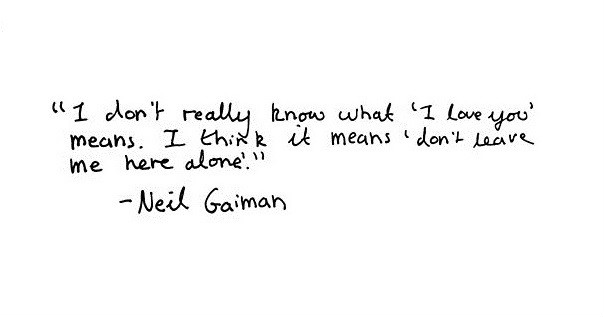 "I don't really know what 'I love you'
means. I think it means 'don't leave
me here alone.'"
-Neil Gaiman